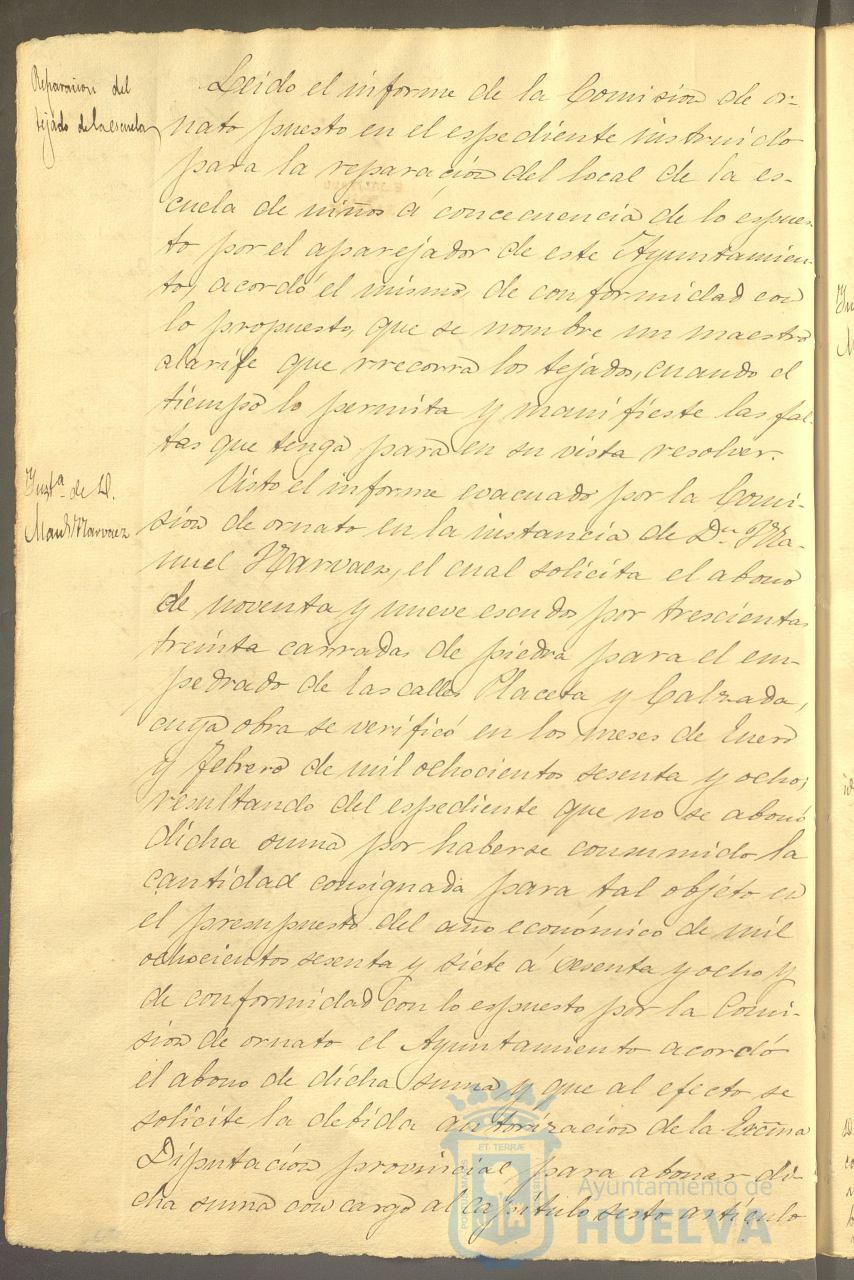 Reparacion del
tejado de la escuela
Leido el informe de la Comision de or-
nato puesto en el espediente instruido
para la reparación del local de la es-
cuela de niños á concecuencia de lo espues-
to por el aparejador de este Ayuntamien-
to, acordó el mismo, de conformidad con
lo propuesto, que se nombre un maestro
alarife que rrecorra los tejados, cuando el
tiempo lo permita y manifieste las fal-
tas que tenga para en su vista resolver.
Inst.ª de D.
Man.l Narvaez
Visto el informe evacuado por la Comi-
sion de ornato en la instancia de D.n Ma-
nuel Narvaez, el cual solicita el abono
de noventa y nueve escudos por trescientas
treinta carradas de piedra para el em-
pedrado de las calles Placeta y Calzada,
cuya obra se verificó en los meses de Enero
y febrero de mil ochocientos sesenta y ocho;
resultando del espediente que no se abonó
dicha suma por haberse consumido la
cantidad consignada para tal objéto en
el presupuesto del año económico de mil
ochocientos sesenta y siete á sesenta y ocho y
de conformidad con lo espuesto por la Comi-
sion de ornato el Ayuntamiento acordó
el abono de dicha suma y que al efecto se
solicite la debida autorizacion de la Excma
Diputación provincial para abonar di-
cha suma con cargo al capítulo sesto artículo
ET TERRÆ
Ayuntamiento de
HUELVA